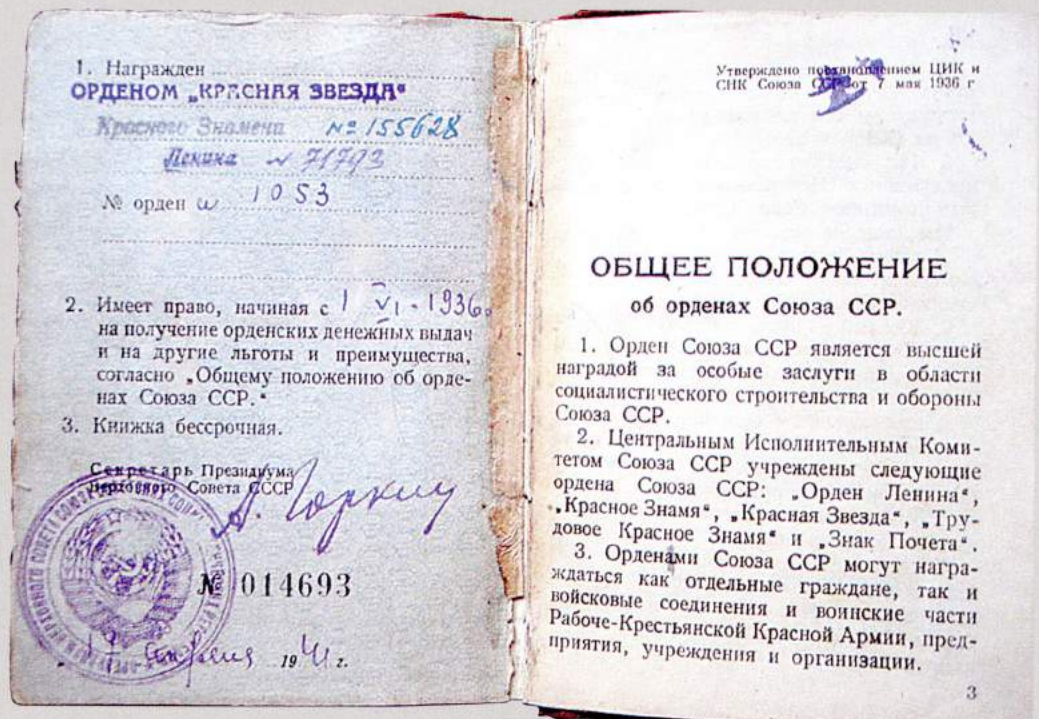 1. Награжден
ОРДЕНОМ „КРАСНАЯ ЗВЕЗДА“
Красного Знамени № 155628
Ленина № 71793
№ орден 1053
2. Имеет право, начиная с 1 VI - 1936 г.
на получение орденских денежных выдач
и на другие льготы и преимущества,
согласно „Общему положению об орде-
нах Союза ССР.“
3. Книжка бессрочная.
Секретарь Президиума
Верховного Совета СССР
А. Горкин
№ 014693
апреля 1941 г.
Утверждено постановлением ЦИК и
СНК Союза ССР от 7 мая 1936 г
ОБЩЕЕ ПОЛОЖЕНИЕ
об орденах Союза ССР.
1. Орден Союза ССР является высшей
наградой за особые заслуги в области
социалистического строительства и обороны
Союза ССР.
2. Центральным Исполнительным Коми-
тетом Союза ССР учреждены следующие
ордена Союза ССР: „Орден Ленина“,
„Красное Знамя“, „Красная Звезда“, „Тру-
довое Красное Знамя“ и „Знак Почета“.
3. Орденами Союза ССР могут награ-
ждаться как отдельные граждане, так и
войсковые соединения и воинские части
Рабоче-Крестьянской Красной Армии, пред-
приятия, учреждения и организации.
3